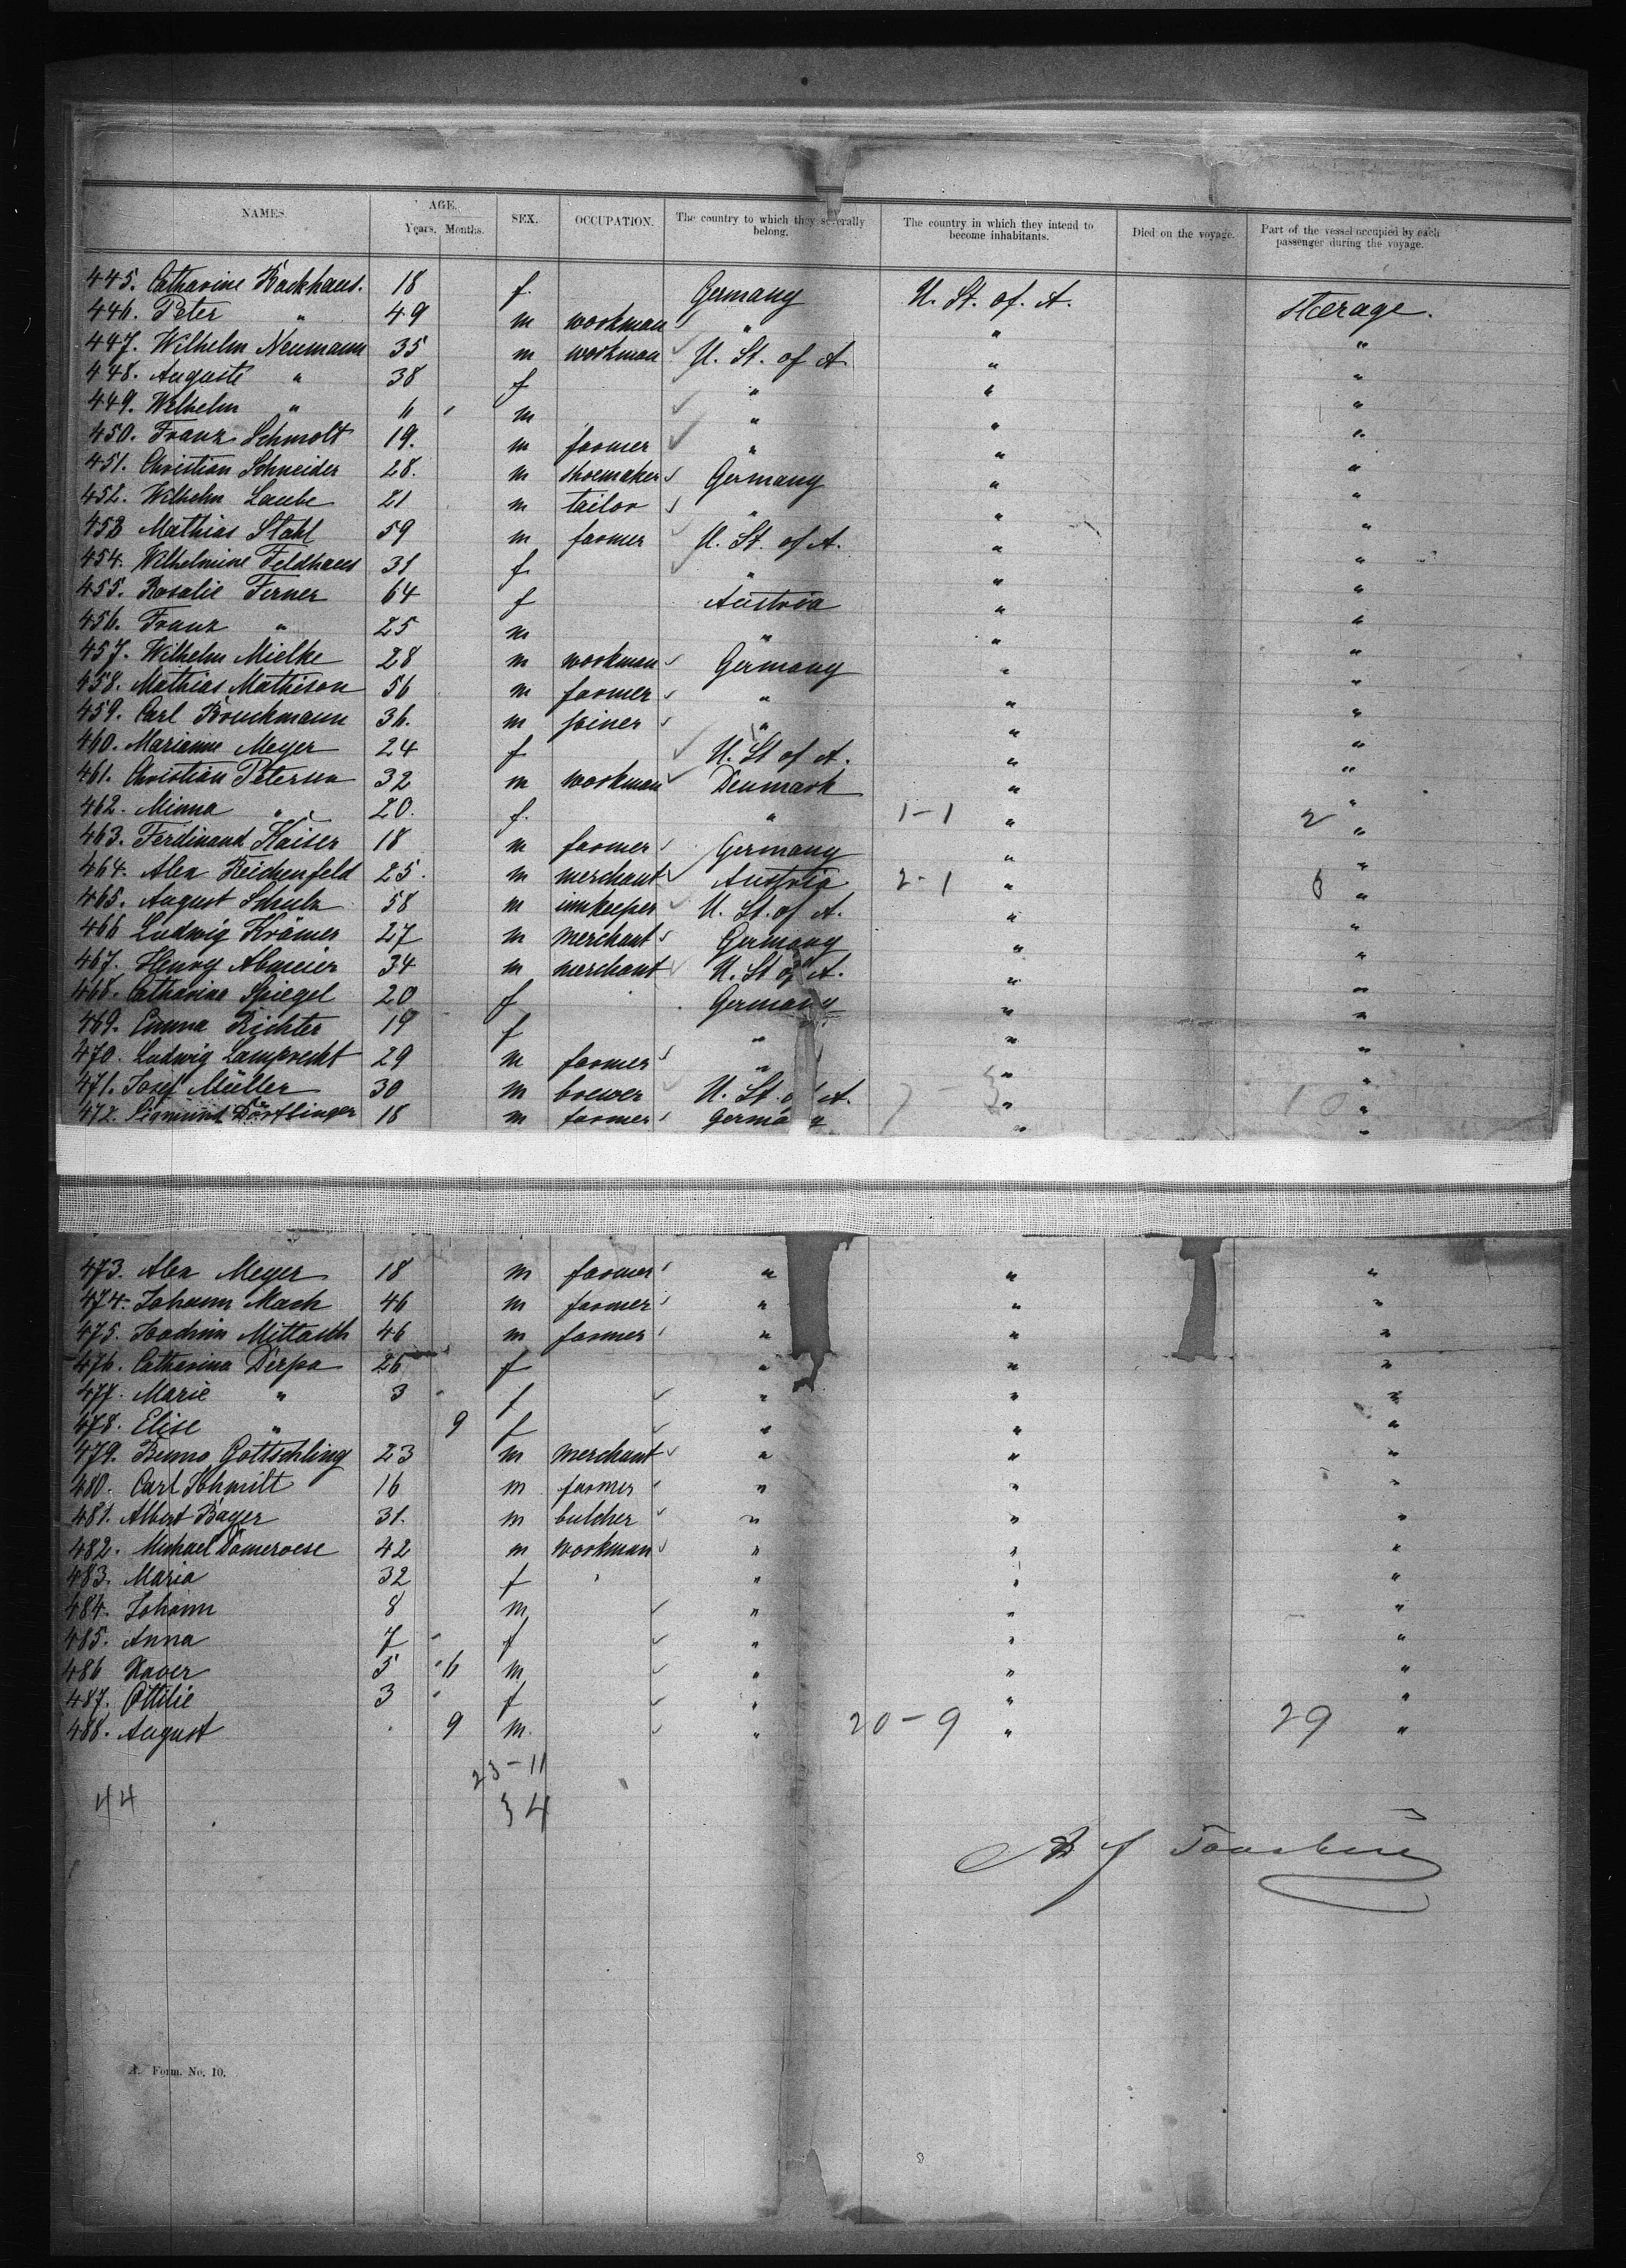 NAMES. AGE. Years. Months. SEX. OCCUPATION. The country to which they severally belong. The country in which they intend to become inhabitants. Died on the voyage. Part of the vessel occupied by each passenger during the voyage.
445. Catharine Backhaus. 18 f. Germany U. St. of. A. steerage.
446. Peter " 49 m workman " " "
447. Wilhelm Neumann 35 m workman U. St. of A " "
448. Auguste " 38 f " " "
449. Wilhelm " 6 m " " "
450. Franz Schmolt 19. m farmer " " "
451. Christian Schneider 28. m shoemaker Germany " "
452. Wilhelm Laube 21 m tailor " " "
453 Mathias Stahl 59 m farmer U. St. of A. " "
454. Wilhelmine Feldhaus 31 f " " "
455. Rosalie Ferner 64 f Austria " "
456. Franz " 25 m " " "
457. Wilhelm Mielke 28 m workman Germany " "
458. Mathias Mathison 56 m farmer " " "
459. Carl Bruckmann 36. m joiner " " "
460. Marianne Meyer 24 f U. St of A. " "
461. Christian Petersen 32 m workman Denmark " "
462. Minna " 20. f. " 1-1 " 2 "
463. Ferdinand Kaiser 18 m farmer Germany " "
464. Alex Reichenfeld 25. m merchant Austria 2-1 " 6 "
465. August Schulz 58 m innkeeper U. St. of A. " "
466 Ludwig Krämer 27 m merchant Germany " "
467. Henry 34 m merchant U. St of A. " "
468. Catharina Spiegel 20 f Germany " "
469. Emma Richter 19 f " " "
470. Ludwig Lamprecht 29 m farmer " " "
471. Josef Müller 30 m brewer U. St. of A. 7-3 " 10 "
472. Sigmund Dörflinger 18 m farmer Germany " "
473. Alex Meyer 18 m farmer " " "
474. Johann Mach 46 m farmer " " "
475. Joachim Mittasch 46 m farmer " " "
476. Catharina Dirpa 26 f " " "
477. Marie " 3 f " " "
478. Elise " 9 f " " "
479. Benno Gottschling 23 m merchant " " "
480. Carl Schmitt 16 m farmer " " "
481. Albert Bayer 31. m butcher " " "
482. Michael Domeroese 42 m workman " " "
483. Maria 32 f " " "
484. Johann 8 m " " "
485. Anna 7 f " " "
486 Xaver 5 6 m " " "
487. Ottilie 3 f " " "
488. August 9 m. " 20-9 " 29 "
23-11
44 34
A. Form. No. 10.